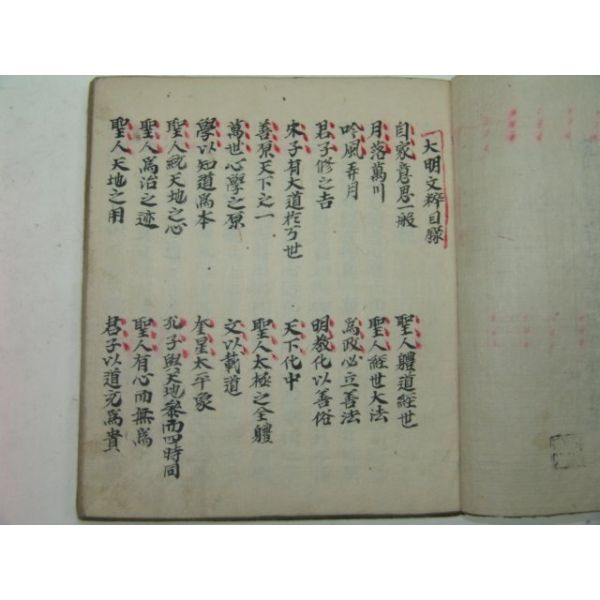 大明文粹目錄
自家意思一般
聖人體道經世
月落萬川
聖人經世大法
吟風弄月
爲政必立善法
君子修之吉
明教化以善俗
朱子有大道扵万世
天下化中
善原天下之一
聖人太極之全體
萬世心學之原
文以載道
學以知道爲本
奎星太平象
聖人純天地之心
孔子與天地參而四時同
聖人爲治之迹
聖人有心而無爲
聖人天地之用
君子以道充爲貴